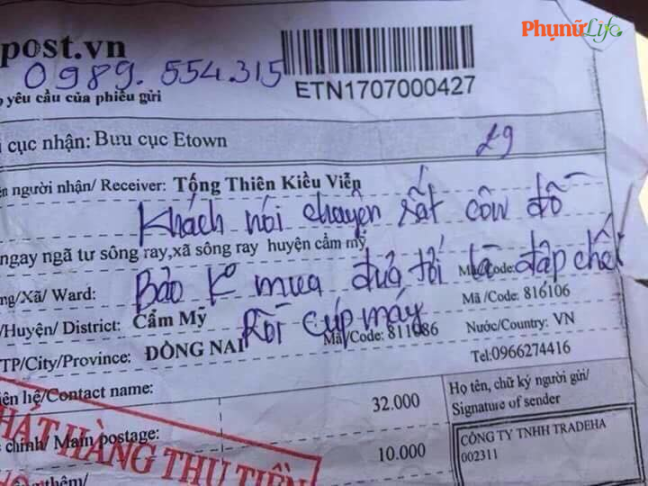 PhụnữLife
post.vn
0989.554.315
yêu cầu của phiếu gửi
ETN1707000427
cục nhận: Bưu cục Etown
29
người nhận/ Receiver: Tống Thiên Kiều Viễn
Khách nói chuyện rất côn đồ
ngay ngã tư sông ray,xã sông ray huyện cẩm mỹ
Bảo K mua đưa tới là đập chết
ng/Xã/ Ward: Mã/Code: 816106
Mã /Code: 816106
/Huyện/ District: Cẩm Mỹ
Rồi cúp máy
Mã/Code: 811086
Nước/Country: VN
TP/City/Province: ĐỒNG NAI
Tel:0966274416
iên hệ/Contact name:
32.000
Họ tên, chữ ký người gửi/
Signature of sender
PHÁT HÀNG THU TIỀN
chính/ Main postage:
10.000
CÔNG TY TNHH TRADEHA
002311
thêm/